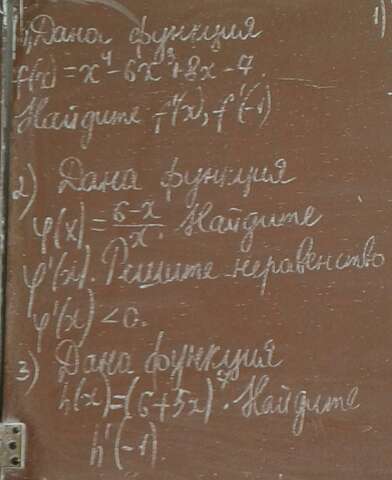 1) Дана функция
f(x) = x⁴ - 6x³ + 8x - 7.
Найдите f'(x), f'(-1)
2) Дана функция
φ(x) = (6-x)/x. Найдите
φ'(x). Решите неравенство
φ'(x) < 0.
3) Дана функция
h(x) = (6+5x)⁷. Найдите
h'(-1).
1)